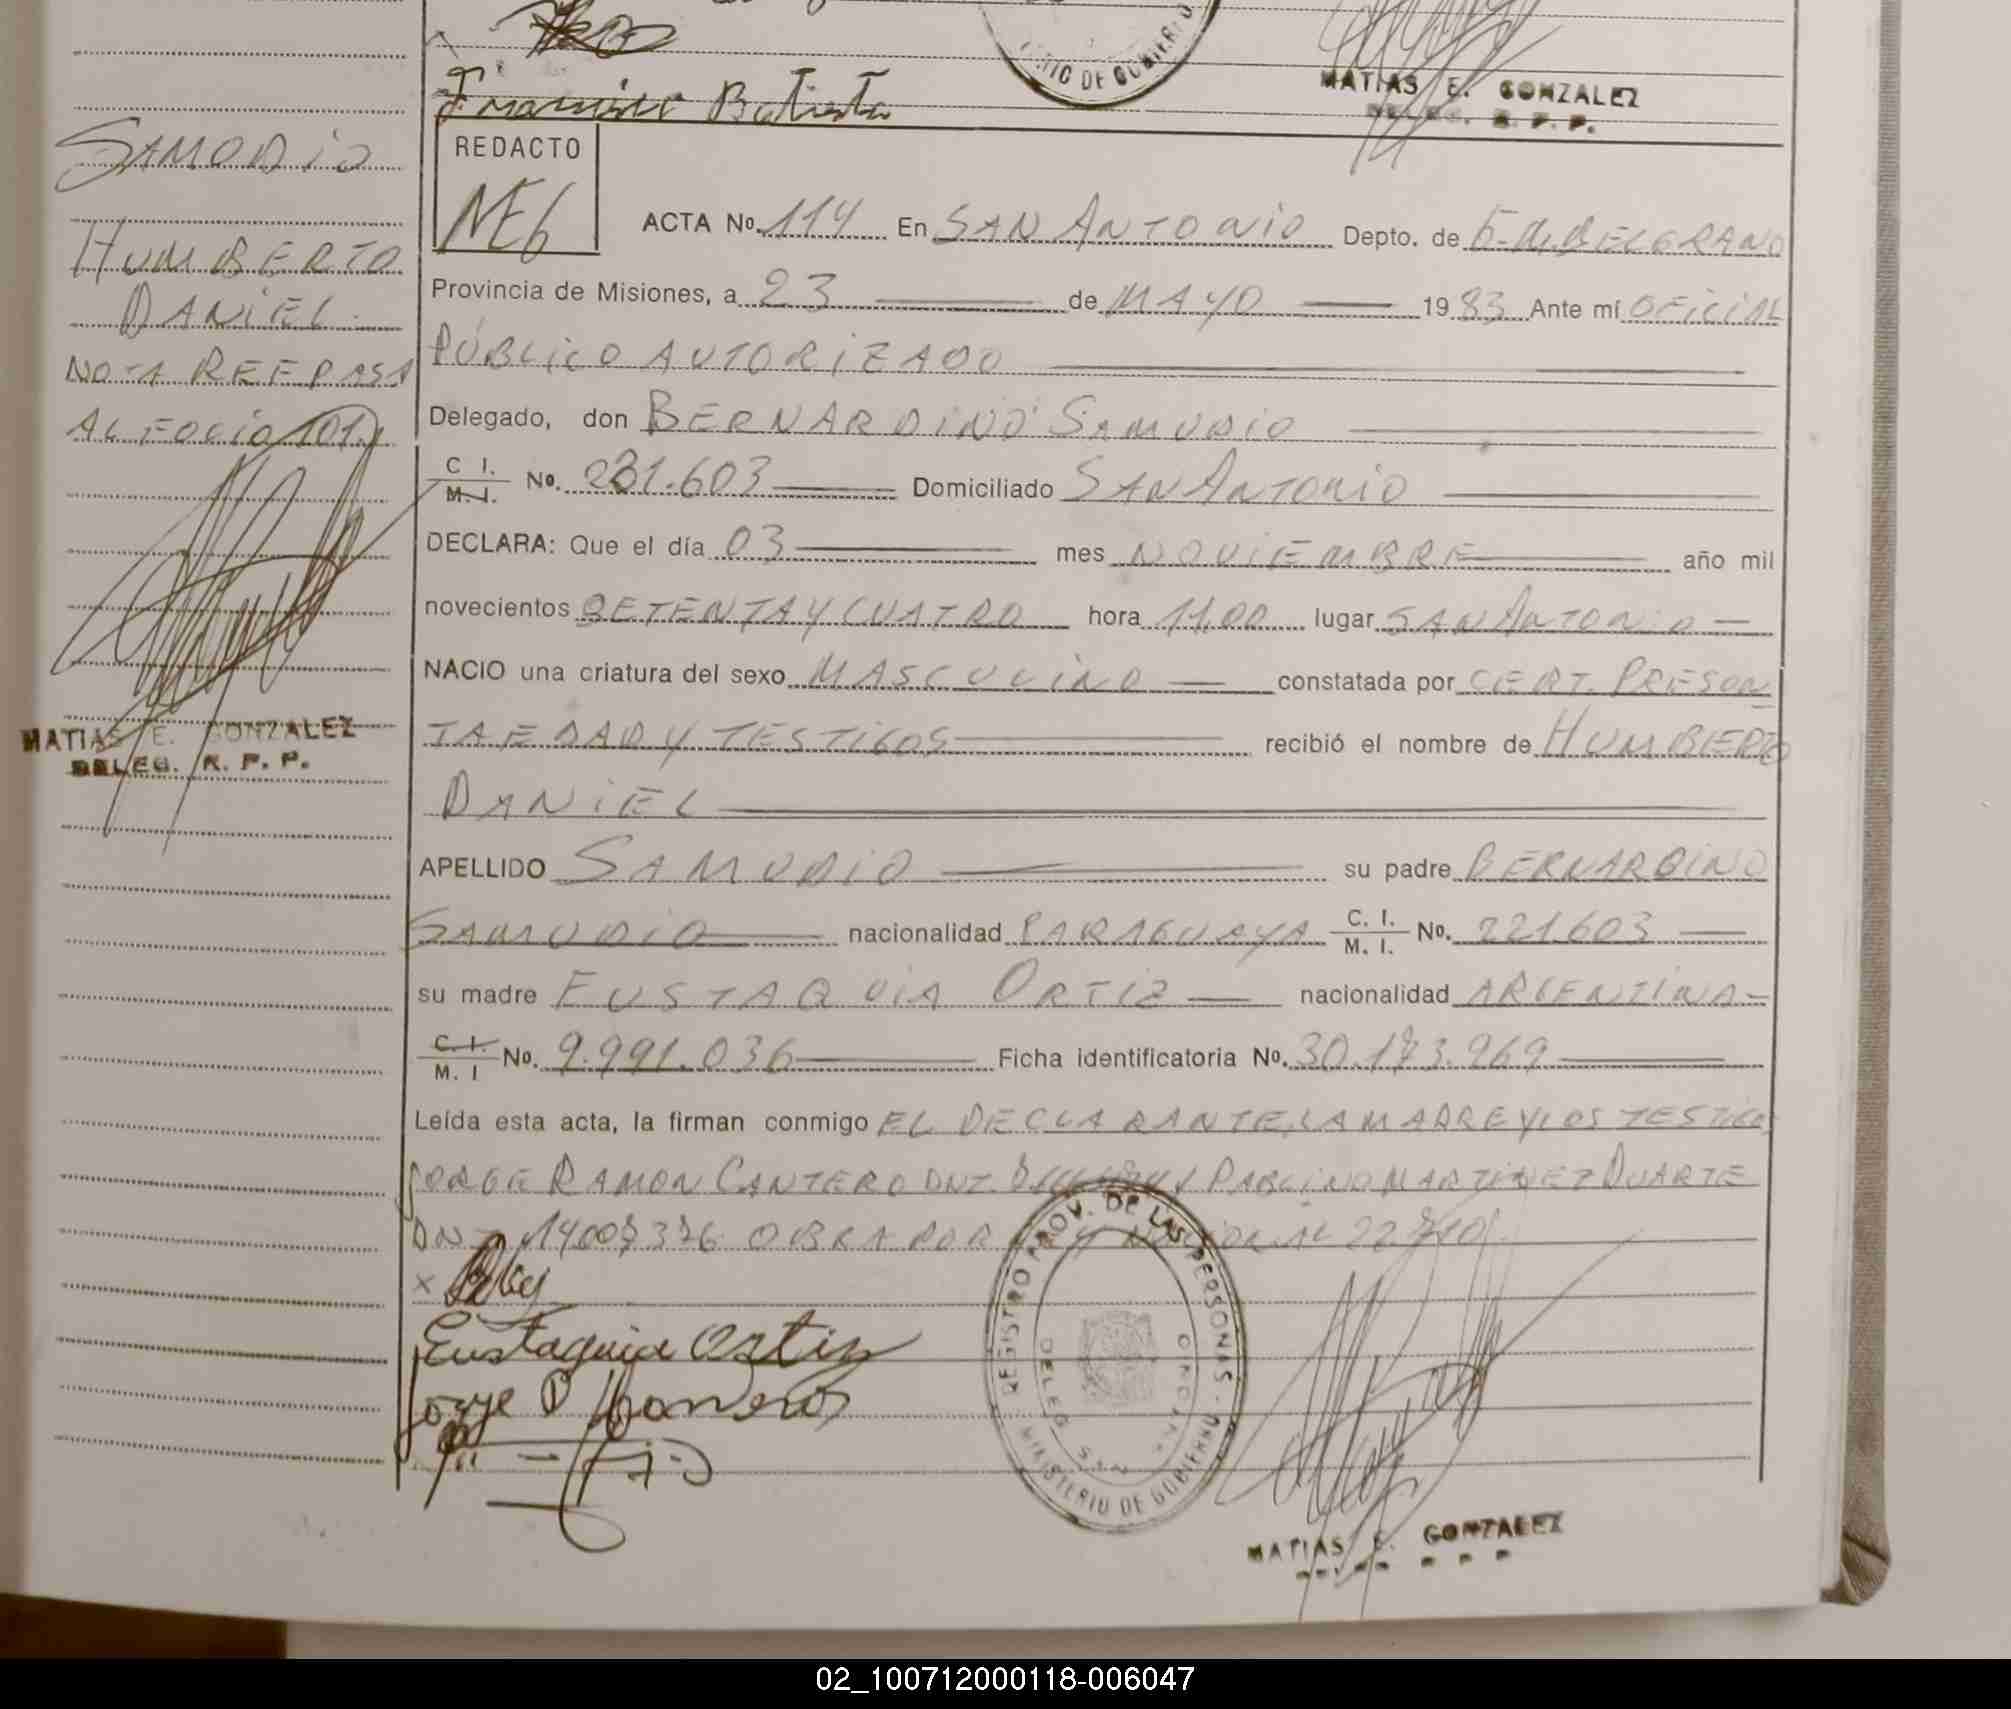 Francisco Batista
MINISTERIO DE GOBIERNO
MATIAS E. GONZALEZ
DELEG. R. P. P.
SAMODIO
HUMBERTO
DANIEL
NOTA REF PASA
AL FOLIO 101
MATIAS E. GONZALEZ
DELEG. R. P. P.
REDACTO
MEG
ACTA No. 114 En SAN ANTONIO Depto. de G. M. BELGRANO
Provincia de Misiones, a 23 de MAYO 1983 Ante mí OFICIAL
PÚBLICO AUTORIZADO
Delegado, don BERNARDINO SAMUDIO
C I. M. I. No. 231.603 Domiciliado SAN ANTONIO
DECLARA: Que el día 03 mes NOVIEMBRE año mil
novecientos SETENTA Y CUATRO hora 11,00 lugar SAN ANTONIO
NACIO una criatura del sexo MASCULINO constatada por CERT. PRESUN
TA EDAD Y TESTIGOS recibió el nombre de HUMBERTO
DANIEL
APELLIDO SAMUDIO su padre BERNARDINO
SAMUDIO nacionalidad PARAGUAYA C. I. M. I. No. 221.603
su madre EUSTAQUIA ORTIZ nacionalidad ARGENTINA
C. I. M. I No. 9.991.036 Ficha identificatoria No. 30.173.969
Leída esta acta, la firman conmigo EL DECLARANTE, LA MADRE Y LOS TESTIGOS
JORGE RAMON CANTERO DNI. Y PABLINO MARTINEZ DUARTE
DNI 14007376 OBRA POR LEY NACIONAL 22.710
x
Eustaquia Ortiz
Jorge R Canteros
REGISTRO PROV. DE LAS PERSONAS - MINISTERIO DE GOBIERNO
DELEG. SAN ANTONIO
MATIAS E. GONZALEZ
02_100712000118-006047